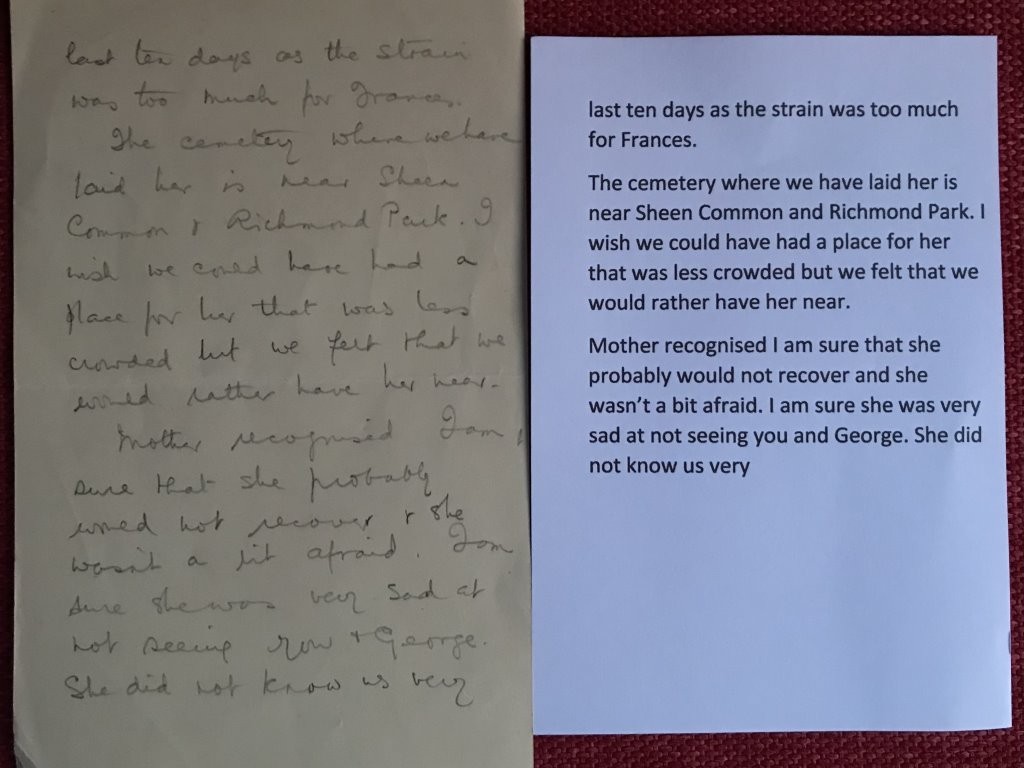 last ten days as the strain
was too much for Frances.
The cemetery where we have
laid her is near Sheen
Common & Richmond Park. I
wish we could have had a
place for her that was less
crowded but we felt that we
would rather have her near.
Mother recognised I am
sure that she probably
would not recover & she
wasn't a bit afraid. I am
sure she was very sad at
not seeing you & George.
She did not know us very
last ten days as the strain was too much
for Frances.
The cemetery where we have laid her is
near Sheen Common and Richmond Park. I
wish we could have had a place for her
that was less crowded but we felt that we
would rather have her near.
Mother recognised I am sure that she
probably would not recover and she
wasn't a bit afraid. I am sure she was very
sad at not seeing you and George. She did
not know us very